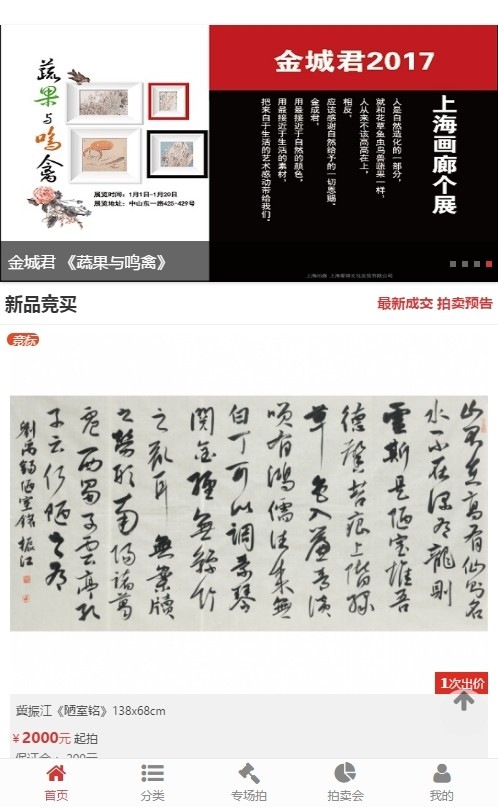 蔬果与鸣禽
展览时间：1月1日-1月20日
展览地址：中山东一路425-429号
金城君2017
上海画廊个展
人是自然造化的一部分，
就和花草鱼虫鸟兽蔬果一样，
人从来不该高高在上，
相反，
应该感谢自然给予的一切恩赐。
金成君，
用最接近于自然的颜色，
用最接近于生活的素材，
把来自于生活的艺术感动带给我们。
金城君 《蔬果与鸣禽》
新品竞买
最新成交 拍卖预告
竞标
山不在高有仙则名
水不在深有龙则
灵斯是陋室惟吾
德馨苔痕上阶绿
草色入帘青谈
笑有鸿儒往来无
白丁可以调素琴
阅金经无丝竹
之乱耳无案牍
之劳形南阳诸葛
庐西蜀子云亭孔
子云何陋之有
刘禹锡陋室铭 振江
1次出价
冀振江《陋室铭》138x68cm
￥2000元 起拍
保证金： 200元
首页
分类
专场拍
拍卖会
我的